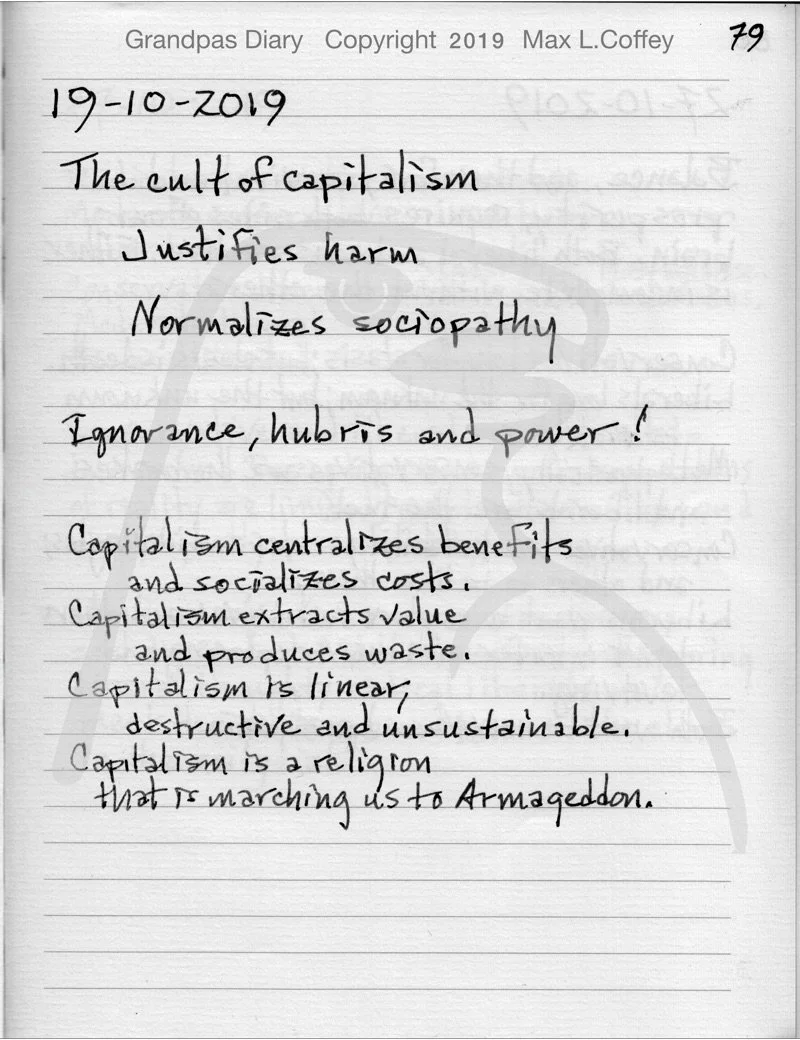 Grandpas Diary Copyright 2019 Max L.Coffey
79
19-10-2019
The cult of capitalism
Justifies harm
Normalizes sociopathy
Ignorance, hubris and power!
Capitalism centralizes benefits
and socializes costs.
Capitalism extracts value
and produces waste.
Capitalism is linear,
destructive and unsustainable.
Capitalism is a religion
that is marching us to Armageddon.